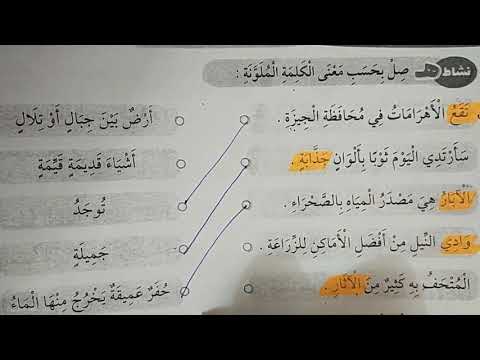 نشاط هـ صِلْ بِحَسَبِ مَعْنَى الْكَلِمَةِ الْمُلَوَّنَةِ :
تَقَعُ الْأَهْرَامَاتُ فِي مُحَافَظَةِ الْجِيزَةِ .
أَرْضٌ بَيْنَ جِبَالٍ أَوْ تِلَالٍ
سَأَرْتَدِي الْيَوْمَ ثَوْبًا بِأَلْوَانٍ جَذَّابَةٍ .
أَشْيَاءَ قَدِيمَةٍ قَيِّمَةٍ
الْآبَارُ هِيَ مَصْدَرُ الْمِيَاهِ بِالصَّحْرَاءِ .
تُوجَدُ
وَادِي النِّيلِ مِنْ أَفْضَلِ الْأَمَاكِنِ لِلزِّرَاعَةِ .
جَمِيلَةٍ
الْمُتْحَفُ بِهِ كَثِيرٌ مِنَ الْآثَارِ .
حُفَرٌ عَمِيقَةٌ يَخْرُجُ مِنْهَا الْمَاءُ